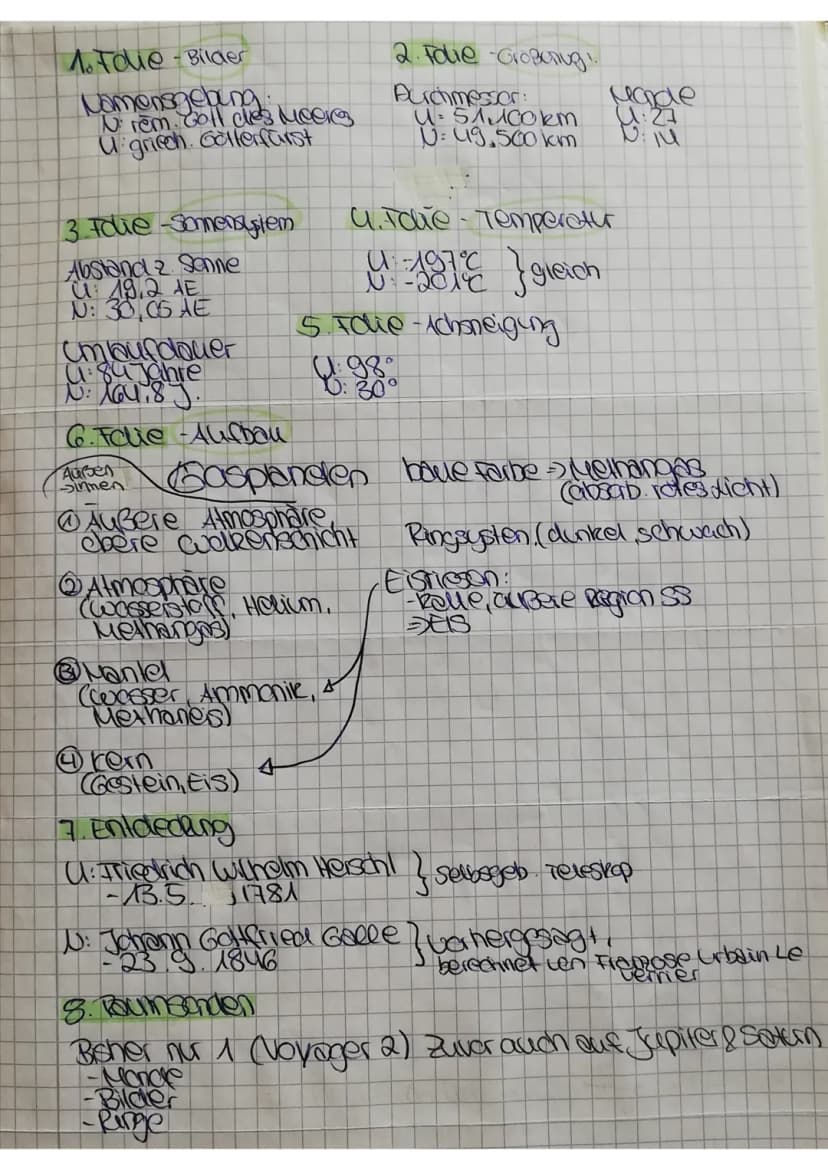 1. Folie - Bilder
Namensgebung:
N: röm. Gott des Meeres
U: griech. Götterfürst
2. Folie - Größenvgl.
Durchmesser:
U: 51.100 km
N: 49.500 km
Monde
U: 27
N: 14
3. Folie - Sonnensystem
Abstand z. Sonne
U: 19,2 AE
N: 30,05 AE
Umlaufdauer
U: 84 Jahre
N: 164,8 J.
4. Folie - Temperatur
U: -197°C
N: -201°C
} gleich
5. Folie - Achsneigung
U: 98°
N: 30°
6. Folie - Aufbau
Außen
→ innen
Gasplaneten
① Äußere Atmosphäre,
obere Wolkenschicht
② Atmosphäre
(Wasserstoff, Helium,
Methangas)
③ Mantel
(Wasser, Ammonik,
Methaneis)
④ Kern
(Gestein, Eis)
blaue Farbe => Methangas
(absob. rotes Licht)
Ringsystem (dunkel, schwach)
Eisriesen:
- kalte, äußere Region SS
=> EIS
7. Entdeckung
U: Friedrich Wilhelm Herschl
- 13.5. 1781
} selbsgeb. Teleskop
N: Johann Gottfried Galle
- 23.9.1846
} vorhergesagt,
berechnet von Franzose Urbain Le
Verrier
8. Raumsonden
Bisher nur 1 (Voyager 2) zuvor auch auf Jupiter & Saturn
- Monde
- Bilder
- Ringe